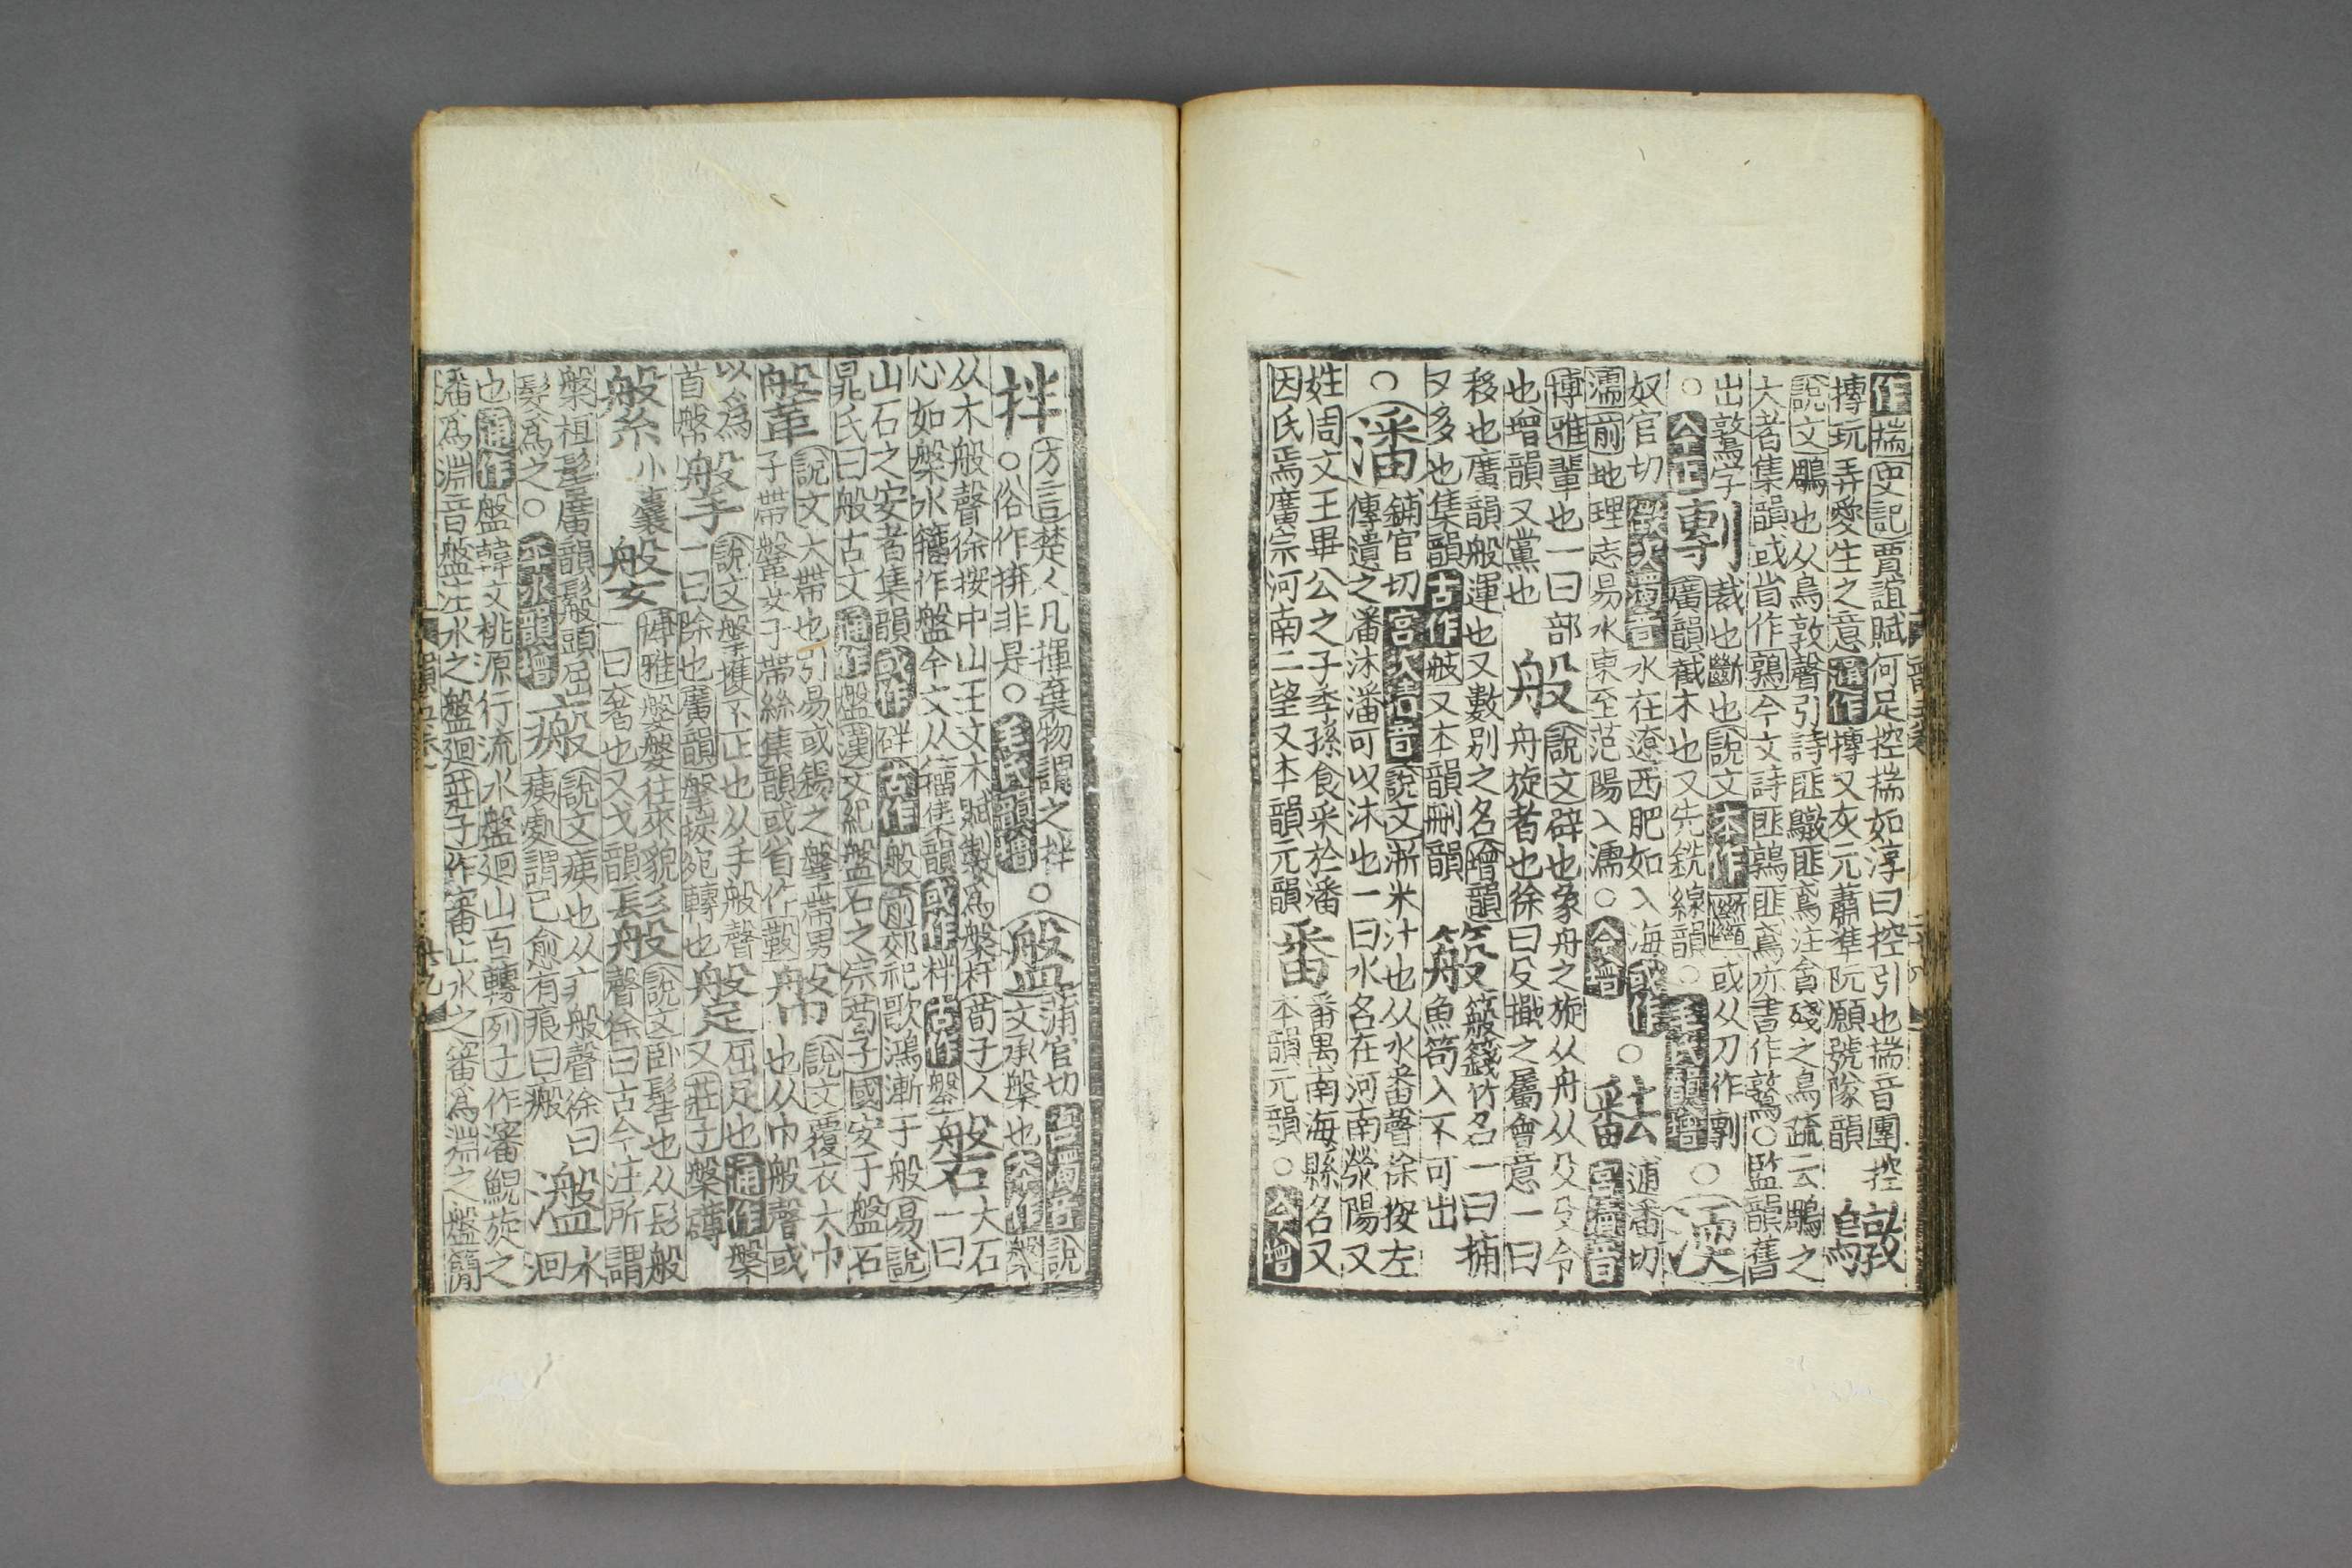 作揣史記賈誼賦何足控揣如淳曰控引也揣音團控
摶玩弄愛生之意通作摶又灰元蕭準阮願號隊韻
鷻
說文鵰也从鳥敦聲引詩匪鷻匪鳶注貪殘之鳥疏云鵰之
大者集韻或省作鶉今文詩匪鶉匪鳶亦書作鷻○監韻舊
出鷻字
○公正剸
裁也斷也說文本作𩠹或从刀作剸
廣韻截木也又先銑線韻○毛氏韻增○渜
奴官切水在遼西肥如入海或作
濡前地理志易水東至范陽入濡○今增○
𤲺逋潘切
博雅輩也一曰部
也增韻又黨也
般
說文辟也象舟之旋从舟从殳殳令
舟旋者也徐曰殳擑之屬會意一曰
移也廣韻般運也又數别之名增韻
又多也集韻古作䑑又本韻删韻
䈲
䈲䉔竹名一曰捕
魚笱入不可出
○潘
鋪官切說文淅米汁也从水番聲徐按左
傳遺之潘沐潘可以沐也一曰水名在河南滎陽又
姓周文王畢公之子季孫食采於潘
因氏焉廣宗河南二望又本韻元韻
番
番禺南海縣名又
本韻元韻○公增
拌
方言楚人凡揮棄物謂之拌
○俗作拚非是○毛氏韻增
○盤
蒲官切說
文承槃也
从木般聲徐按中山王文木賦製爲槃杅荀子人
心如槃水籀作盤今文从籀集韻或作柈古作鎜
磐
大石
一曰
山石之安者集韻或作䃑古作般前郊祀歌鴻漸于般易說
晁氏曰般古文通作盤漢文紀盤石之宗荀子國安于盤石
鞶
說文大帶也引易或鍚之鞶帶男
子帶鞶革女子帶絲集韻或省作䩯
幋
說文覆衣大巾
也从巾般聲或
以爲
首幋
搫
說文搫擭不正也从手般聲
一曰除也廣韻搫挼宛轉也
跘
屈足也通作槃
又莊子槃礴
縏
小囊
媻
博雅媻媻往來貌
一曰奢也又戈韻
鬗
說文臥髻也从髟般
聲徐曰古今注所謂
槃桓髻廣韻鬗頭屈
髮爲之○平水韻增
瘢
說文痍也从疒般聲徐曰
痍處謂已愈有痕曰瘢
瀊
水
洄
也通作盤韓文桃源行流水盤廻山百轉列子作瀋鯢旋之
潘爲淵音盤注水之盤廻莊子作審止水之審爲淵之盤簡